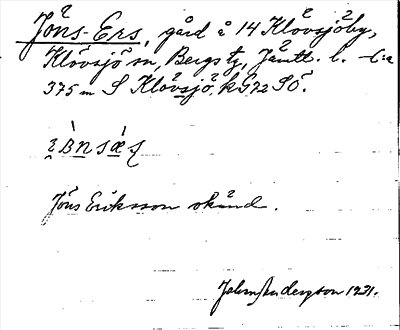 Jöns-Ers, gård å 14 Klövsjöby,
Klövsjö sn, Bergs tg, Jämtl. l. -C:a
375 m S Klövsjö, k G72 SÖ.
Jöns Eriksson okänd.
John Anderson 1931.